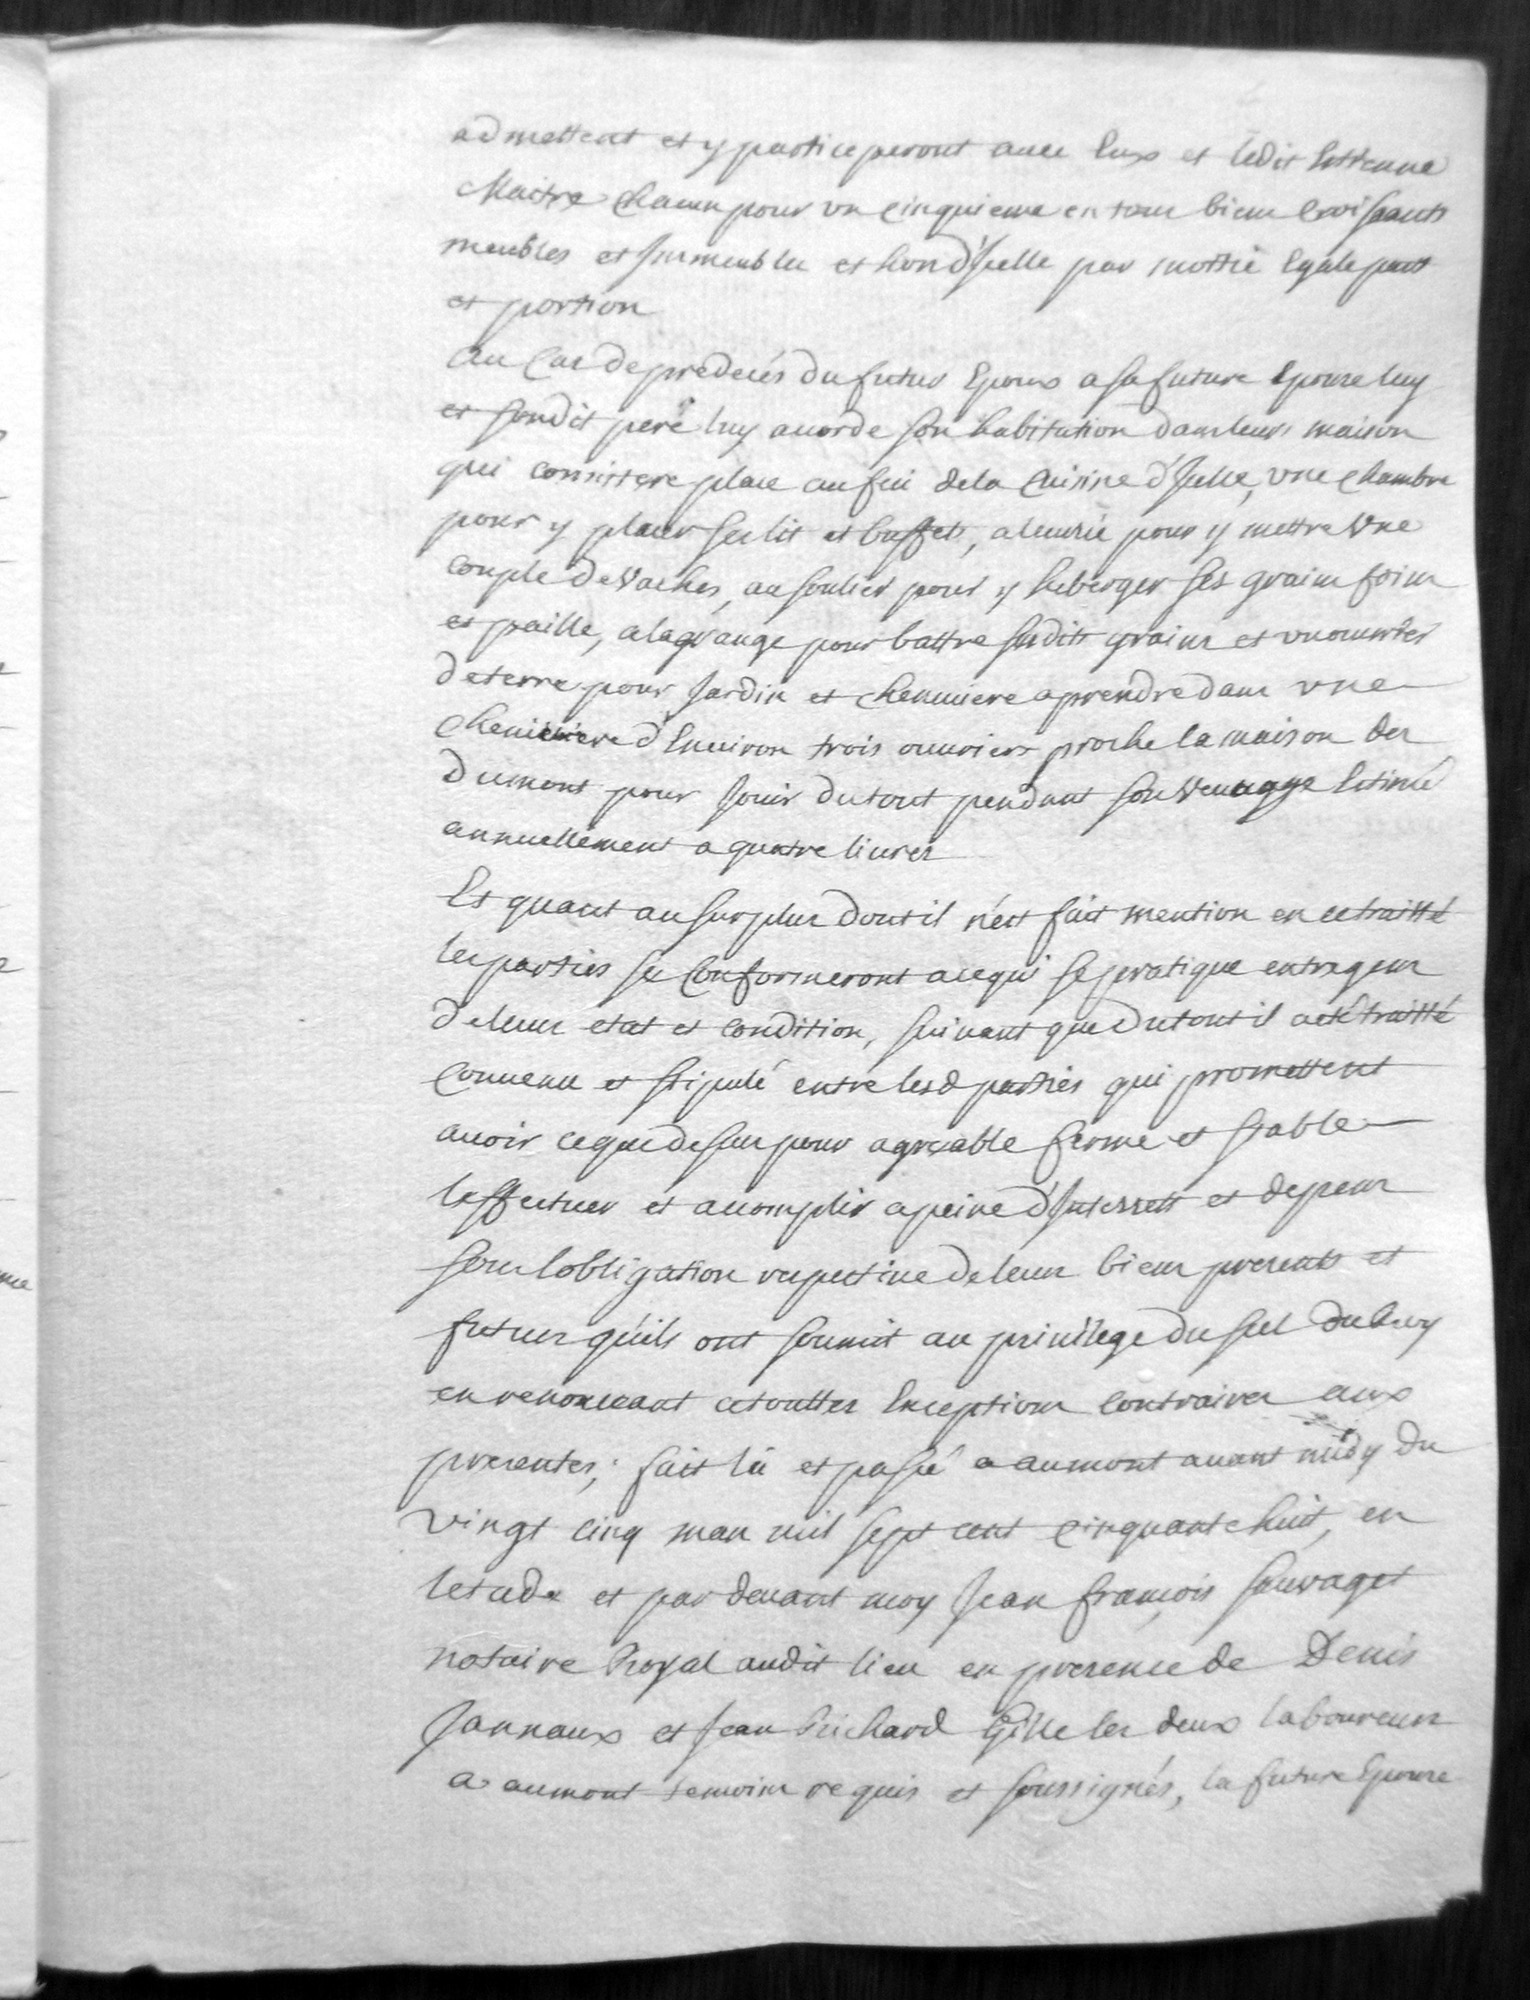 admettent et y participeront avec Eux et ledit Estienne
Maitre chacun pour un cinquieme en tous biens croissants
meubles et Immeubles et hors d'Icelle par moitié Egale part
et portion
Au Cas de predecés du futur Epoux a sa future Epouse luy
et sondit pere luy acorde son habitation dans leurs maison
qui consistera place au feu de la Cuisine d'Icelle, une chambre
pour y placer ses lit et buffets, a lecurie pour y mettre une
couple de vaches, au soulier pour y heberger ses grains foins
et paille, a la grange pour battre susdits grains et un ouvrier
de terre pour Jardin et chenniere a prendre dans une
cheniere d'Environ trois ouvriers proche la maison des
Dumont pour Jouir du tout pendant son veuvage Estimé
annuellement a quatre livres
Et quant au surplus dont il n'est fait mention en ce traitté
les parties se conformeront a ce qui se pratique entre gens
de leur etat et condition, suivant que du tout il a eté traitté
convenu et stipulé entre lesd parties qui promettent
avoir ce que dessus pour agreable ferme et stable
leffectuer et acomplir a peine d'Interrets et depens
sous lobligation respective de leurs biens presents et
futurs quils ont soumit au privilege du scel du Roy
en renonceant a touttes Exceptions contraires aux
presentes; fait lu et passé a aumont avant midy du
vingt cinq mars mil sept cent cinquante huit, en
letude et par devant moy Jean françois sauvaget
notaire Royal audit lieu en presence de Denis
Jannaux et Jean Richard Gille les deux laboureurs
a aumont temoins requis et soussignés, la future Epouse